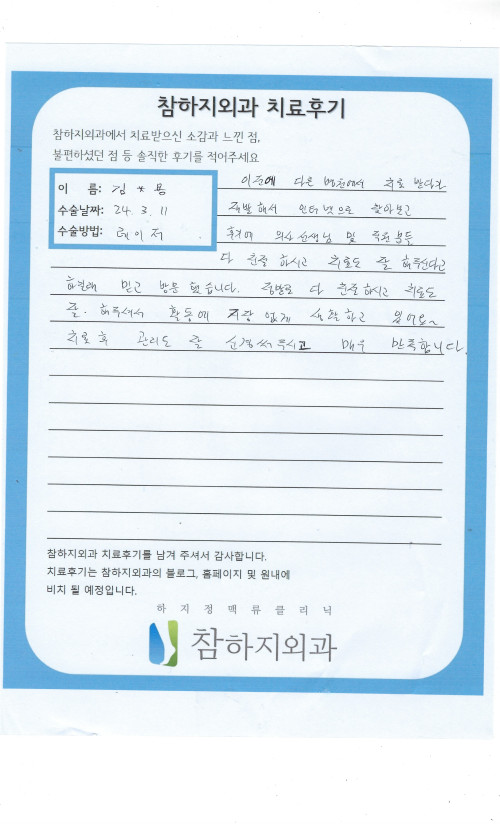 참하지외과 치료후기
참하지외과에서 치료받으신 소감과 느낀 점,
불편하셨던 점 등 솔직한 후기를 적어주세요
이 름: 김 * 용
수술날짜: 24. 3. 11
수술방법: 레이저
이전에 다른 병원에서 치료 받다가
재발해서 인터넷으로 찾아보고
후기에 의사선생님 및 직원분들
다 친절하시고 치료도 잘 해주신다고
하길래 믿고 방문했습니다. 정말로 다 친절하시고 치료도
잘 해주셔서 활동에 지장 없게 생활하고 있어요~
치료 후 관리도 잘 신경써주시고 매우 만족합니다.
참하지외과 치료후기를 남겨 주셔서 감사합니다.
치료후기는 참하지외과의 블로그, 홈페이지 및 원내에
비치 될 예정입니다.
하지정맥류클리닉
참하지외과